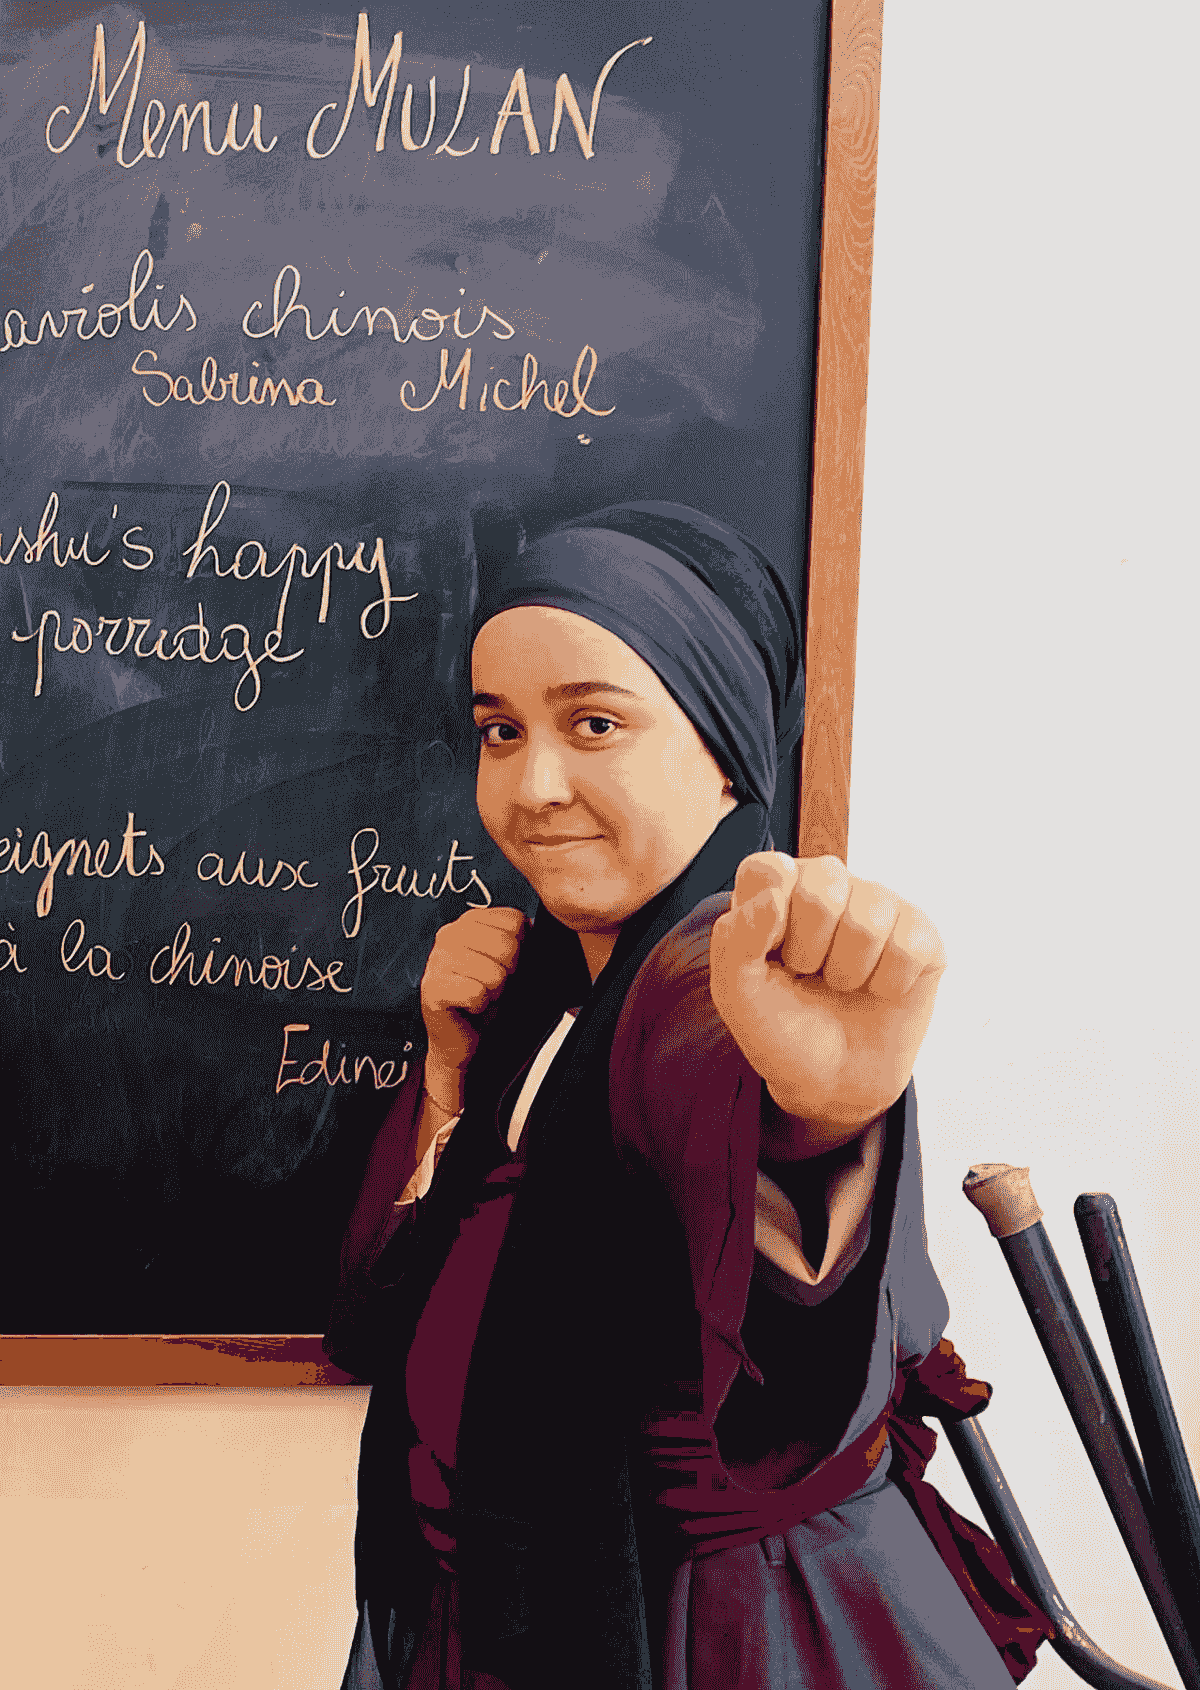 Menu MULAN
aviolis chinois
Sabrina Michel
ushu's happy
porridge
eignets aux fruits
à la chinoise
Edinei